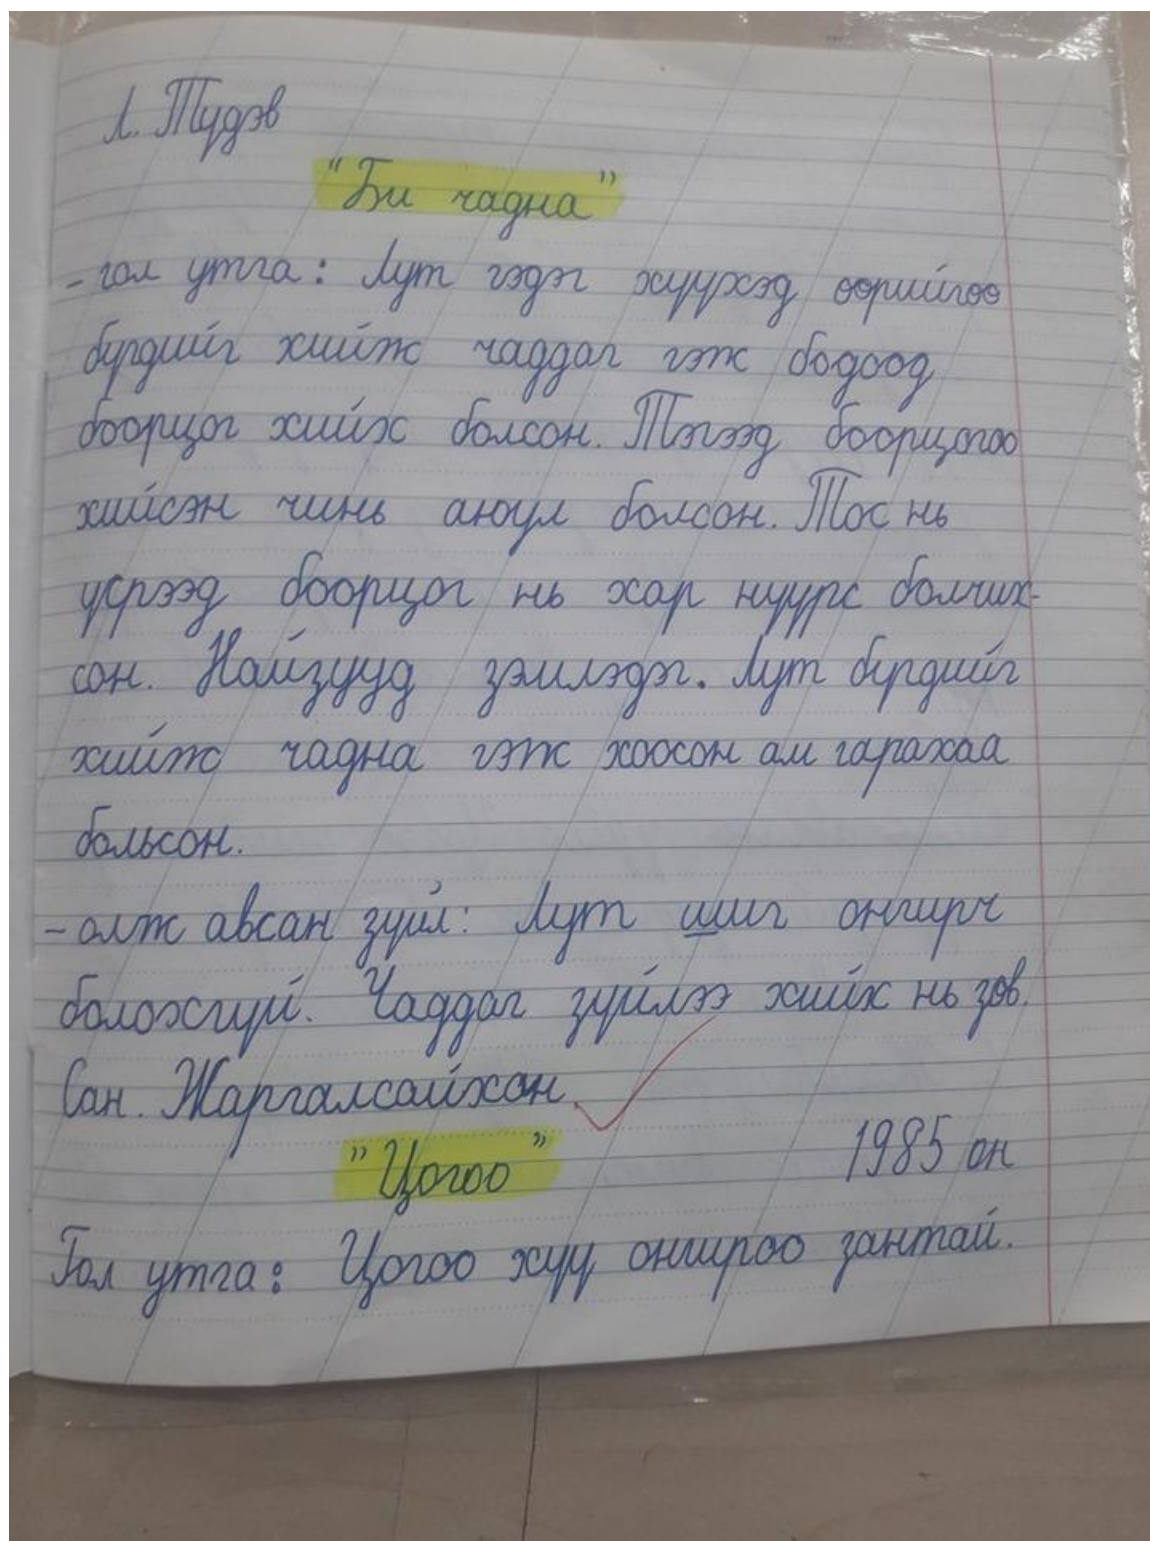 Л. Түдэв
"Би чадна"
- гол утга: Лут гэдэг хүүхэд өөрийгөө
бүгдийг хийж чаддаг гэж бодоод
боорцог хийх болсон. Тэгээд боорцогоо
хийсэн чинь аюул болсон. Тос нь
үсрээд боорцог нь хар нүүрс болчих-
сон. Найзууд зэмлэдэг. Лут бүгдийг
хийж чадна гэж хоосон ам гарахаа
больсон.
- олж авсан зүйл: Лут шиг онгирч
болохгүй. Чаддаг зүйлээ хийх нь зөв.
Сан. Жаргалсайхан.
"Цогоо"
1985 он
Гол утга: Цогоо хүү онгироо зантай.